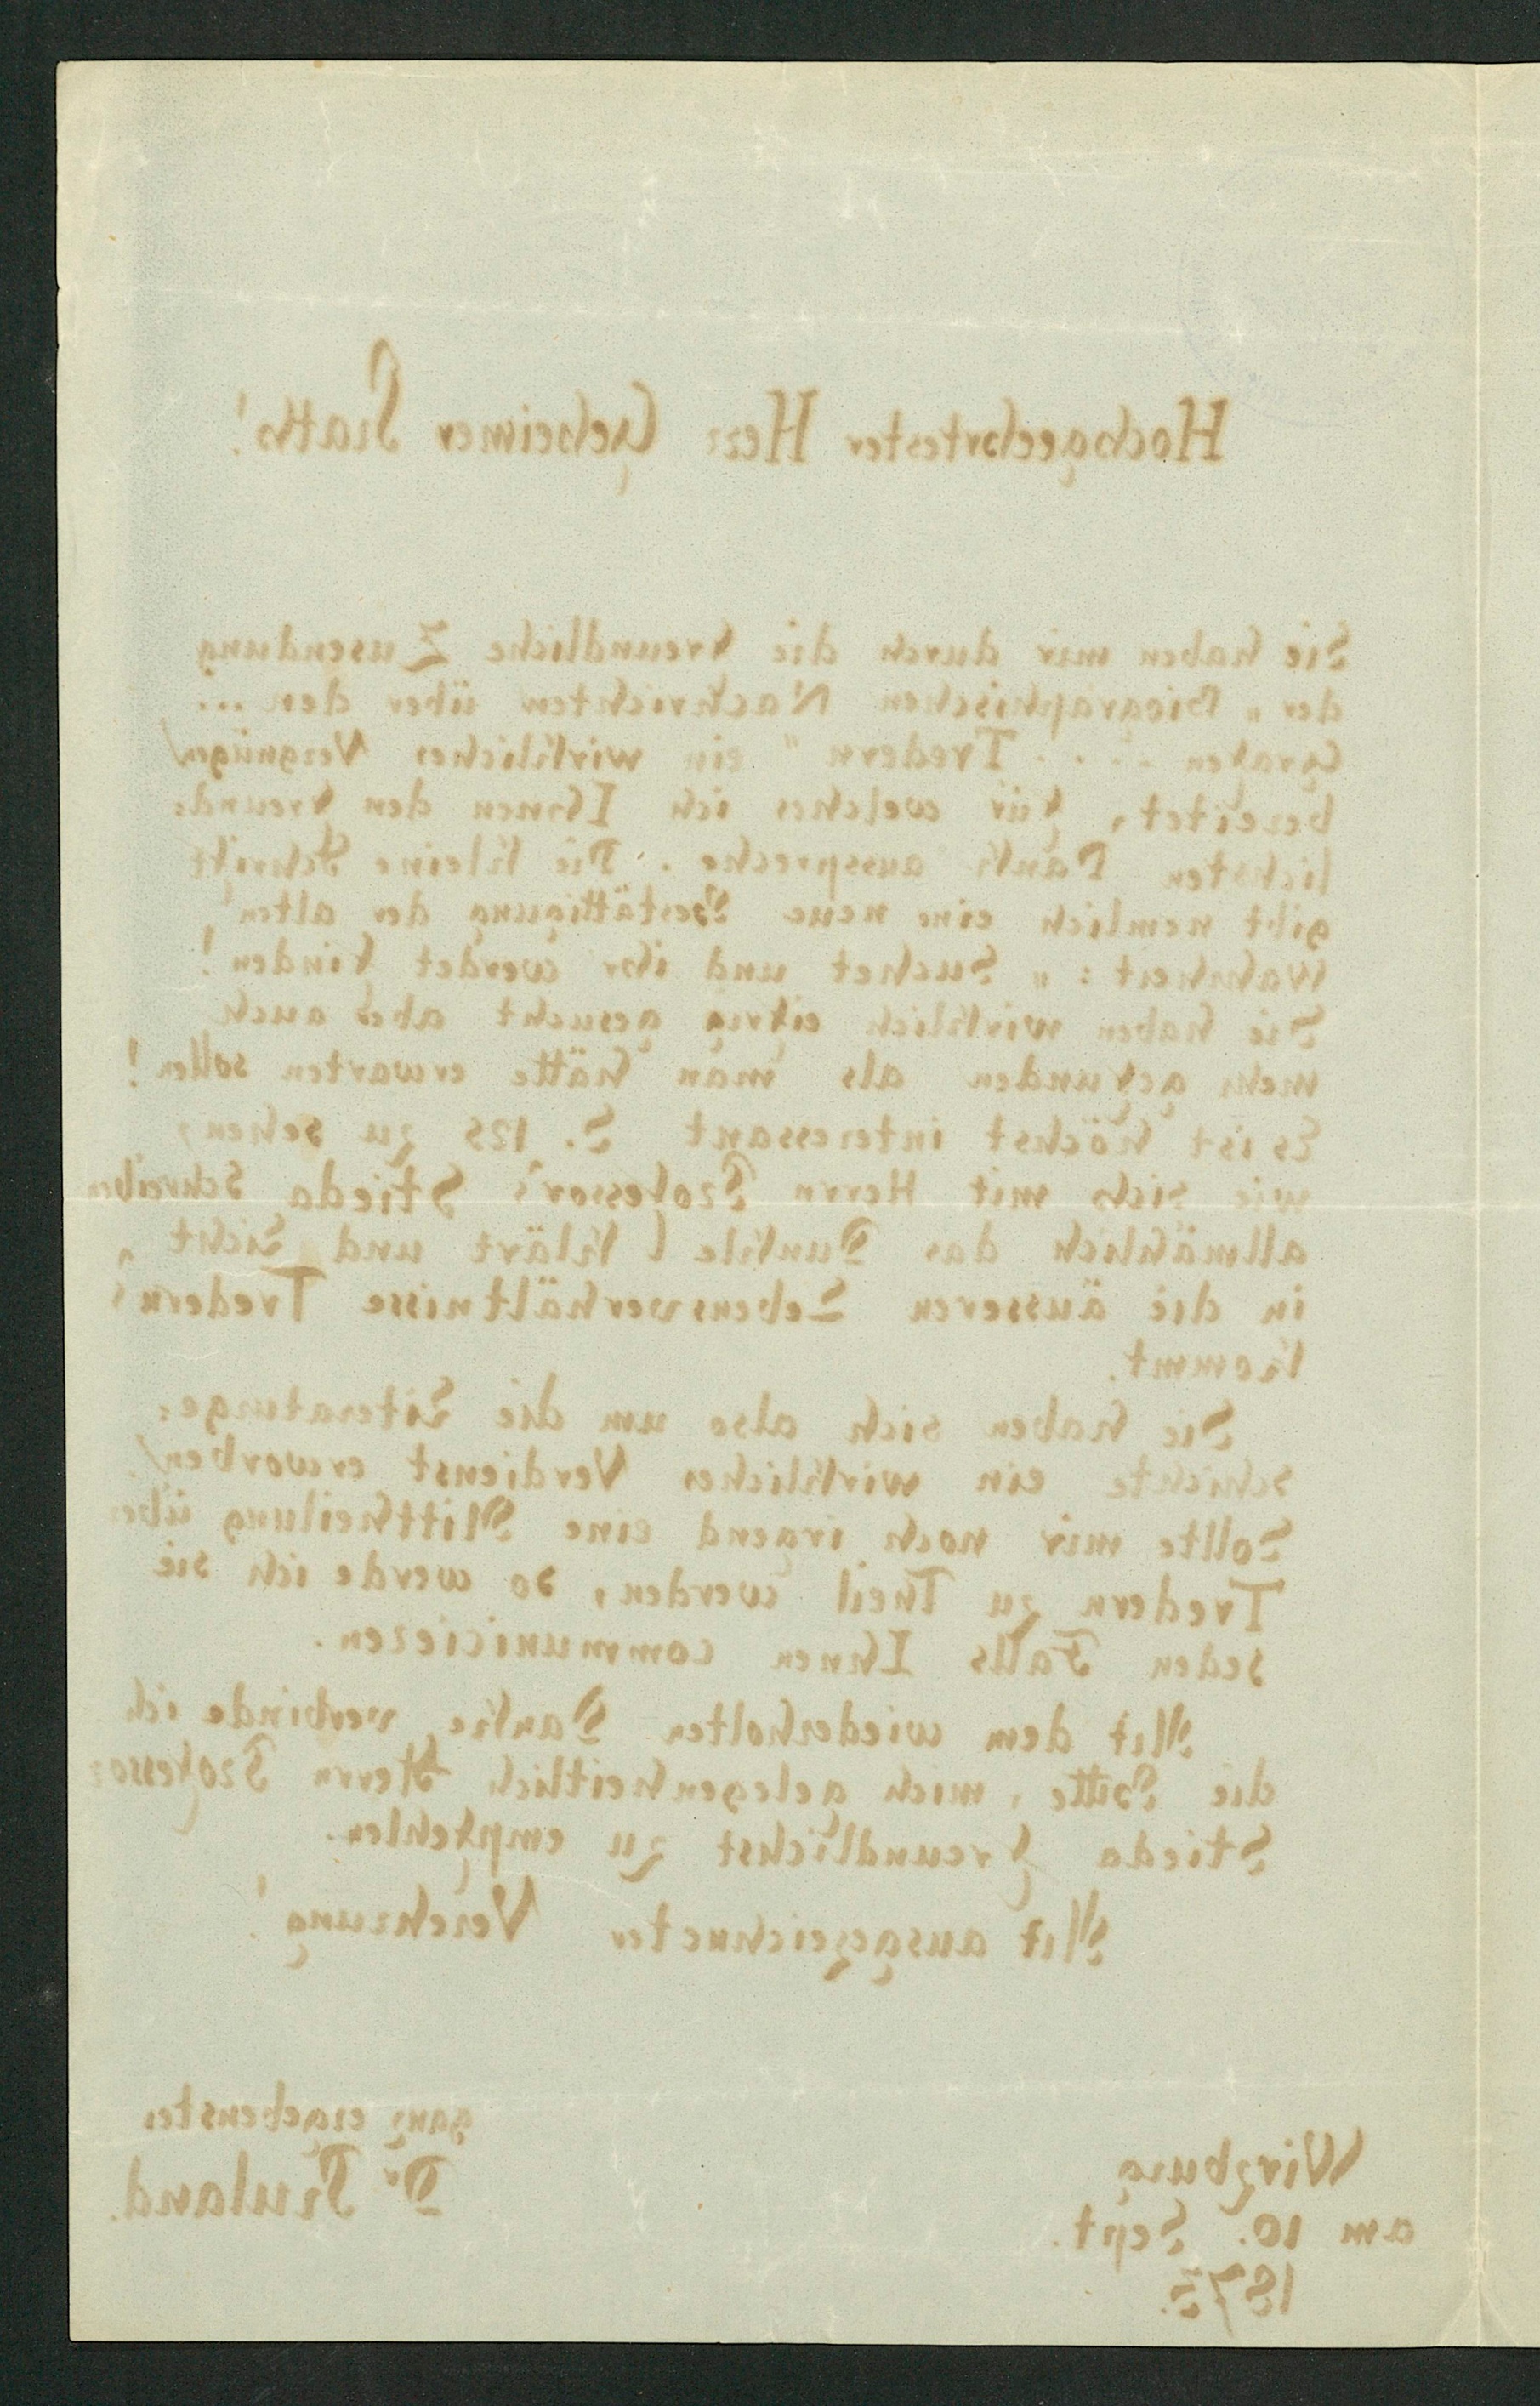 Hochgeehrtester Herr Geheimer Rath!
Sie haben mir durch die freundliche Zusendung
der „Biographischen Nachrichten über den ...
Grafen - . . . Tredern" ein wirkliches Vergnügen
bereitet, für welches ich Ihnen den freund:
lichsten Dank ausspreche. Die kleine Schrift
gibt nemlich eine neue Bestättigung der alten
Wahrheit: „Suchet und ihr werdet finden!
Sie haben wirklich eifrig gesucht aber auch
mehr gefunden als man hätte erwarten sollen!
Es ist höchst interessant S. 125 zu sehen,
wie sich mit Herrn Professor's Stieda Schreiben
allmählich das Dunkle klärt und Licht
in die äusseren Lebensverhältnisse Tredern's
kommt.
Sie haben sich also um die Literaturge:
schichte ein wirkliches Verdienst erworben/
Sollte mir noch irgend eine Mittheilung über
Tredern zu Theil werden, so werde ich sie
jeden Falls Ihnen communicieren.
Mit dem wiederholten Danke verbinde ich
die Bitte, mich gelegenheitlich Herrn Professor
Stieda freundlichst zu empfehlen.
Mit ausgezeichneter Verehrung!
ganz ergebenster
Dr Ruland.
Wirzburg
am 10. Sept.
1873.